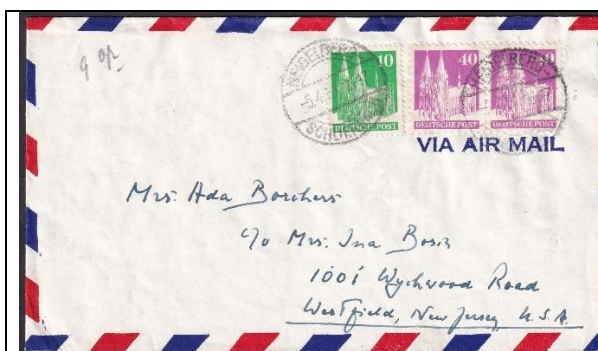 10 40 40
DEUTSCHE POST DEUTSCHE POST DEUTSCHE POST
HEIDELBERG
VIA AIR MAIL
Mrs. Ada Borchers
c/o Mrs. Ina Bosch
1001 Wychwood Road
Westfield, New Jersey U.S.A.